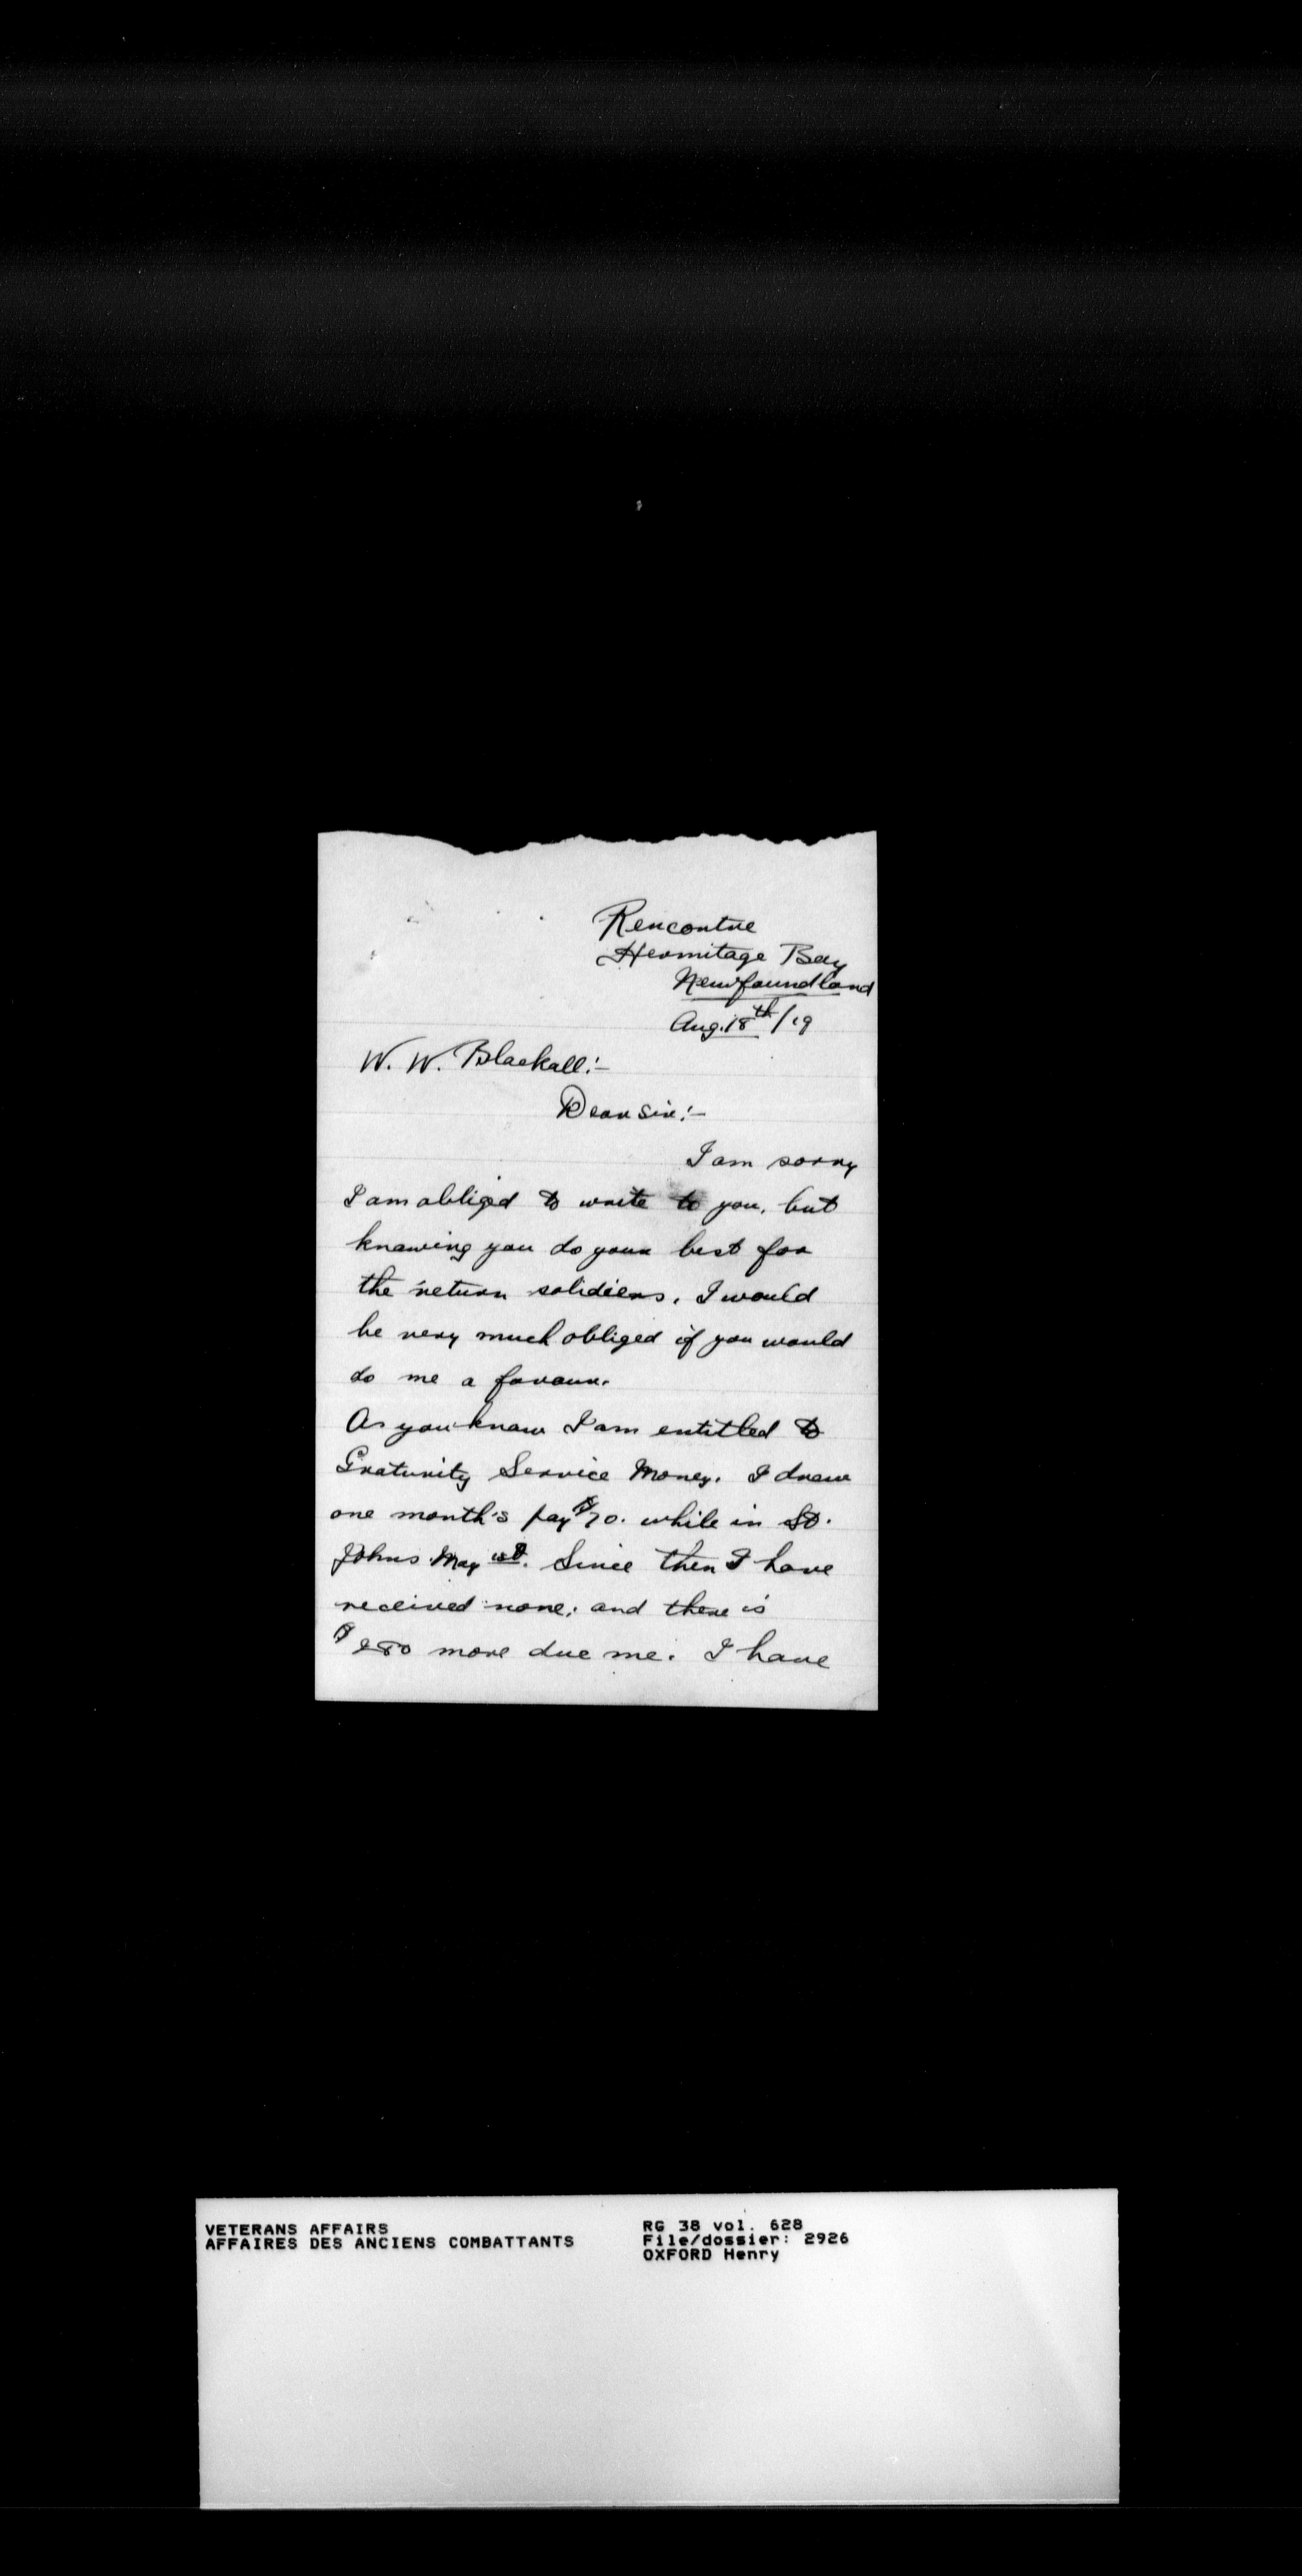 Rencontre
Hermitage Bay
Newfoundland
Aug. 18th/19
W. W. Blackall:-
Dear Sir:-
I am sorry
I am obliged to write to you, but
knowing you do your best for
the return solidiers. I would
be very much obliged if you would
do me a favour.
As you know I am entitled to
Gratunity Service Money. I drew
one month's pay $70. while in St.
Johns May 1st. Since then I have
received none; and there is
$280 more due me. I have
VETERANS AFFAIRS
AFFAIRES DES ANCIENS COMBATTANTS
RG 38 vol. 628
File/dossier: 2926
OXFORD Henry